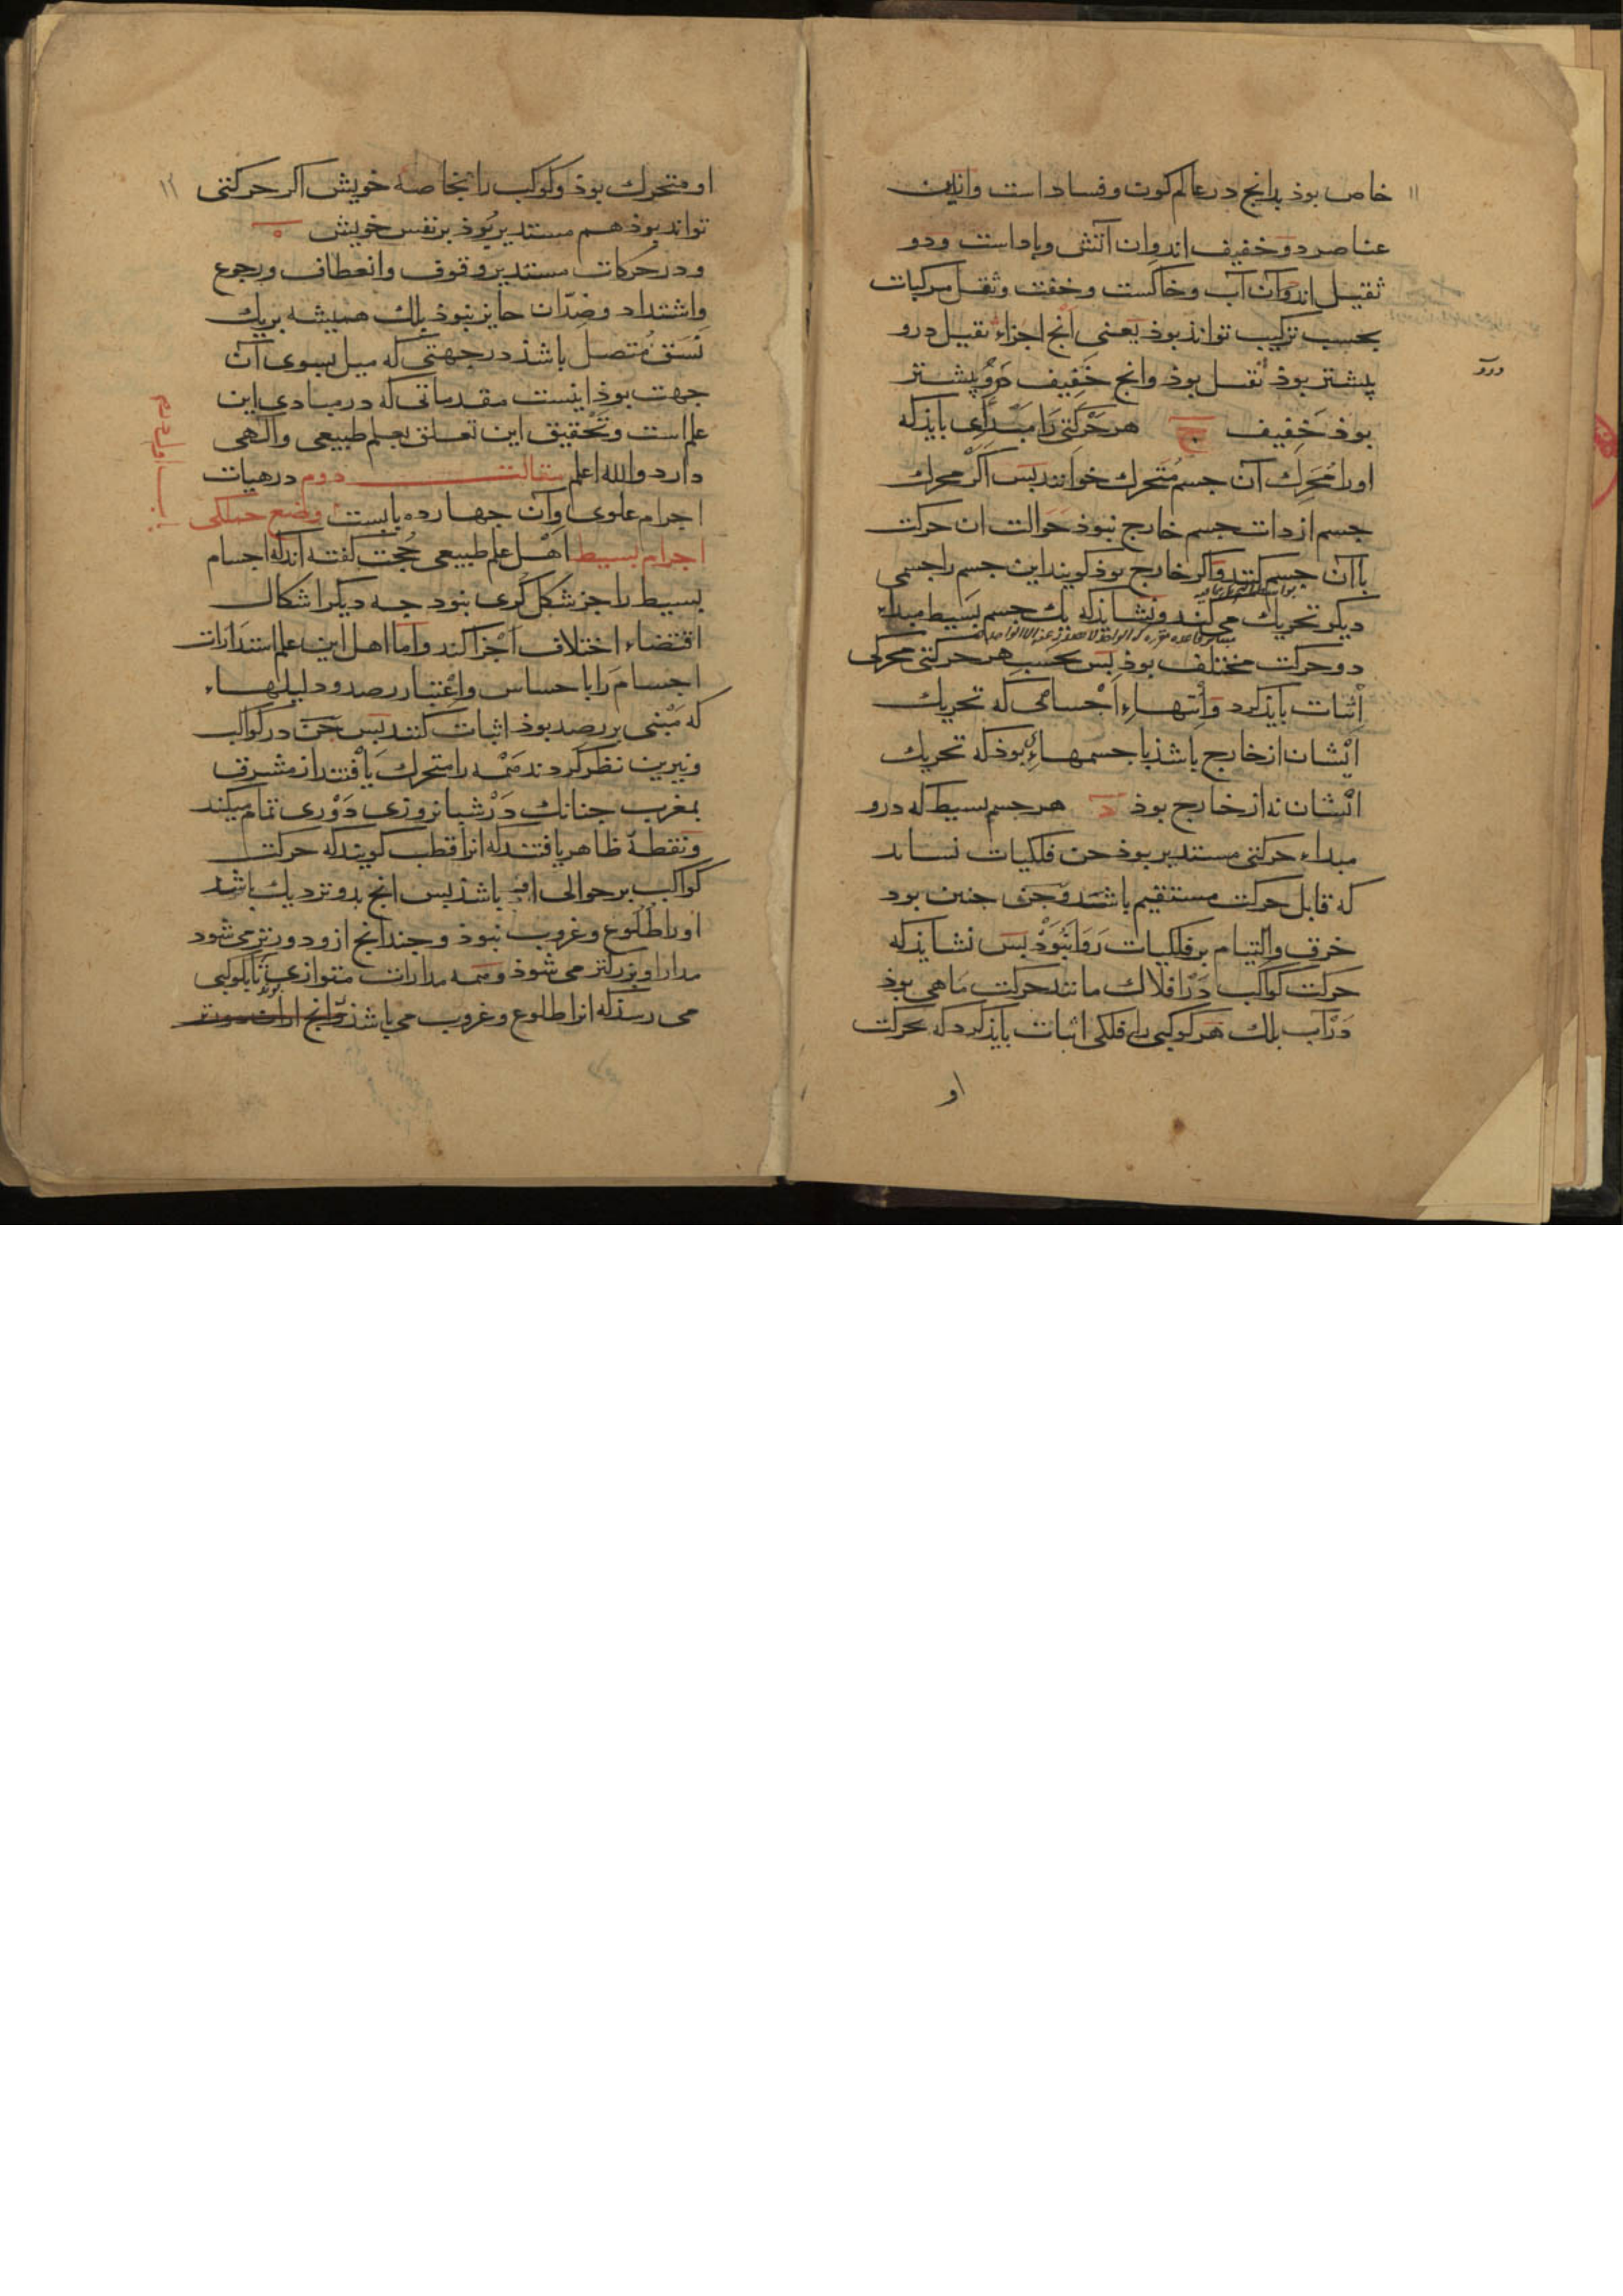 ١١
خاص بوذ بدانج در عالم کون و فساد است و ازین
عناصر دو خفیف اند و ان آتش و باد است و دو
ثقیل اند و آن آب و خاکست و خفت و ثقل مرکبات
بحسب ترکیب تواند بوذ یعنی آنج اجزاء ثقیل درو
بیشتر بوذ أثقل بوذ وانج خفیف درو بیشتر
بوذ خفیف ج هر حرکتی را مبدأی بایذ که
اورا محرک آن جسم متحرک خوانند بس اکر محرک
جسم از دات جسم خارج نبوذ حوالت ان حرکت
باآن جسم کنند و اکر خارج بوذ کویند این جسم را جسمی
دیکر تحریک می کند و نشاید که یک جسم بسیط مبداء
دو حرکت مختلف بوذ بس بحسب هر حرکتی محرکی
اثبات بایذ کرد و انتهاء اجسامی که تحریک
ایشان از خارج باشذ با جسمهاءی بوذ که تحریک
ایشان نه از خارج بوذ د هر جسم بسیط که درو
مبداء حرکتی مستدیر بوذ جن فلکیات نساید
که قابل حرکت مستقیم باشد و جن جنین بود
خرق والتیام بر فلکیات روا نبوذ بس نشایذ که
حرکت کواکب در افلاک مانند حرکت ماهی بوذ
در آب بلک هر کوکبی را فلکی اثبات بایذ کرد که بحرکت
او
درو
١٢
او متحرک بوذ و کوکب را بخاصه خویش اکر حرکتی
تواند بوذ هم مستدیر بوذ بر نفس خویش ه
و در حرکات مستدیر وقوف و انعطاف و رجوع
واشتداد و ضدّ ان جایز نبوذ بلک همیشه بریک
نسق متصل باشذ در جهتی که میل بسوی آن
جهت بوذ اینست مقدماتی که در مبادی این
علم است و تحقیق این تعلق بعلم طبیعی و الهی
دارد والله اعلم مقالت دوم در هیات
اجرام علوی و آن جهارده بابست وضع جملکی
اجرام بسیط اهل علم طبیعی حجت کفته اندکه اجسام
بسیط را جز شکل کری نبود جه دیکر اشکال
اقتضاء اختلاف اجزا کند و اما اهل این علم استدارات
اجسام را باحساس و اعتبار رصد و دلیلهاء
که مبنی بر رصد بوذ اثبات کنند بس جن در کواکب
و نیرین نظر کردند همه را متحرک یافتند از مشرق
بمغرب جنانک در شبانروزی دوری تمام میکند
و نقطهٔ ظاهر یافتند که انرا قطب کویند که حرکت
کواکب بر حوالی او باشذ بس انج بدو نزدیک باشد
اورا طلوع و غروب نبوذ و جندانج ازو دورتر می شود
مدار او بزرکتر می شوذ و همه مدارات متوازی تا بکوکبی
می رسذ که انرا طلوع و غروب می باشذ